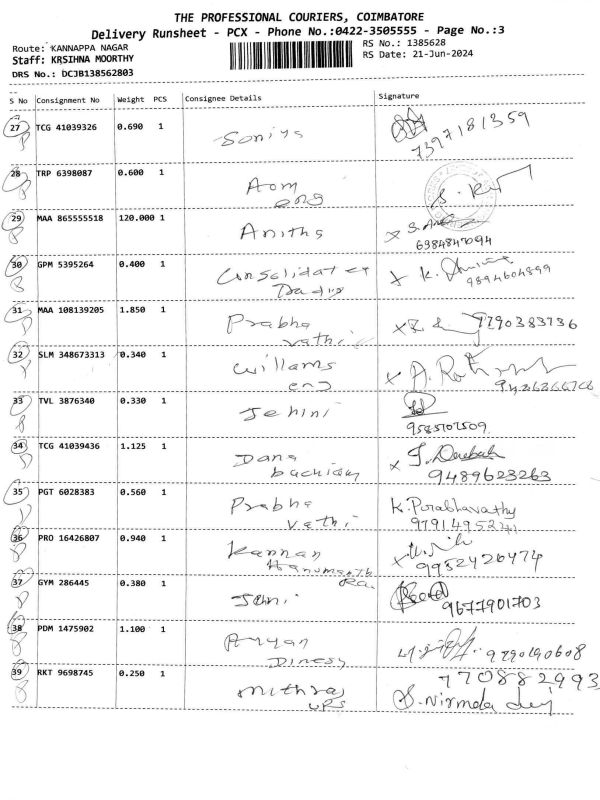 THE PROFESSIONAL COURIERS, COIMBATORE
Delivery Runsheet - PCX - Phone No.:0422-3505555 - Page No.:3
Route: KANNAPPA NAGAR RS No.: 1385628
Staff: KRSIHNA MOORTHY RS Date: 21-Jun-2024
DRS No.: DCJB138562803
S No Consignment No Weight PCS Consignee Details Signature
27 TCG 41039326 0.690 1 Soniya 7397181359
28 TRP 6398087 0.600 1 Aom
eng
29 MAA 865555518 120.000 1 Anitha
6384847094
30 GPM 5395264 0.400 1 Consolidated x K.
Trading 9894604899
31 MAA 108139205 1.850 1 Prabha x 9790383736
vathi
32 SLM 348673313 0.340 1 Willams x A.
eng
33 TVL 3876340 0.330 1 Jehini
9585707509
34 TCG 41039436 1.125 1 Dana x J.
bachiam 9489623263
35 PGT 6028383 0.560 1 Prabha K. Prabhavathy
vathi 9791495241
36 PRO 16426807 0.940 1 Kannan x
Hanumanth 9952426474
Ra.
37 GYM 286445 0.380 1 Jehni
9677901703
38 PDM 1475902 1.100 1 Aryan 9790190608
Dinesh
39 RKT 9698745 0.250 1 Mithras 770882993
UPS S. Nirmala devi